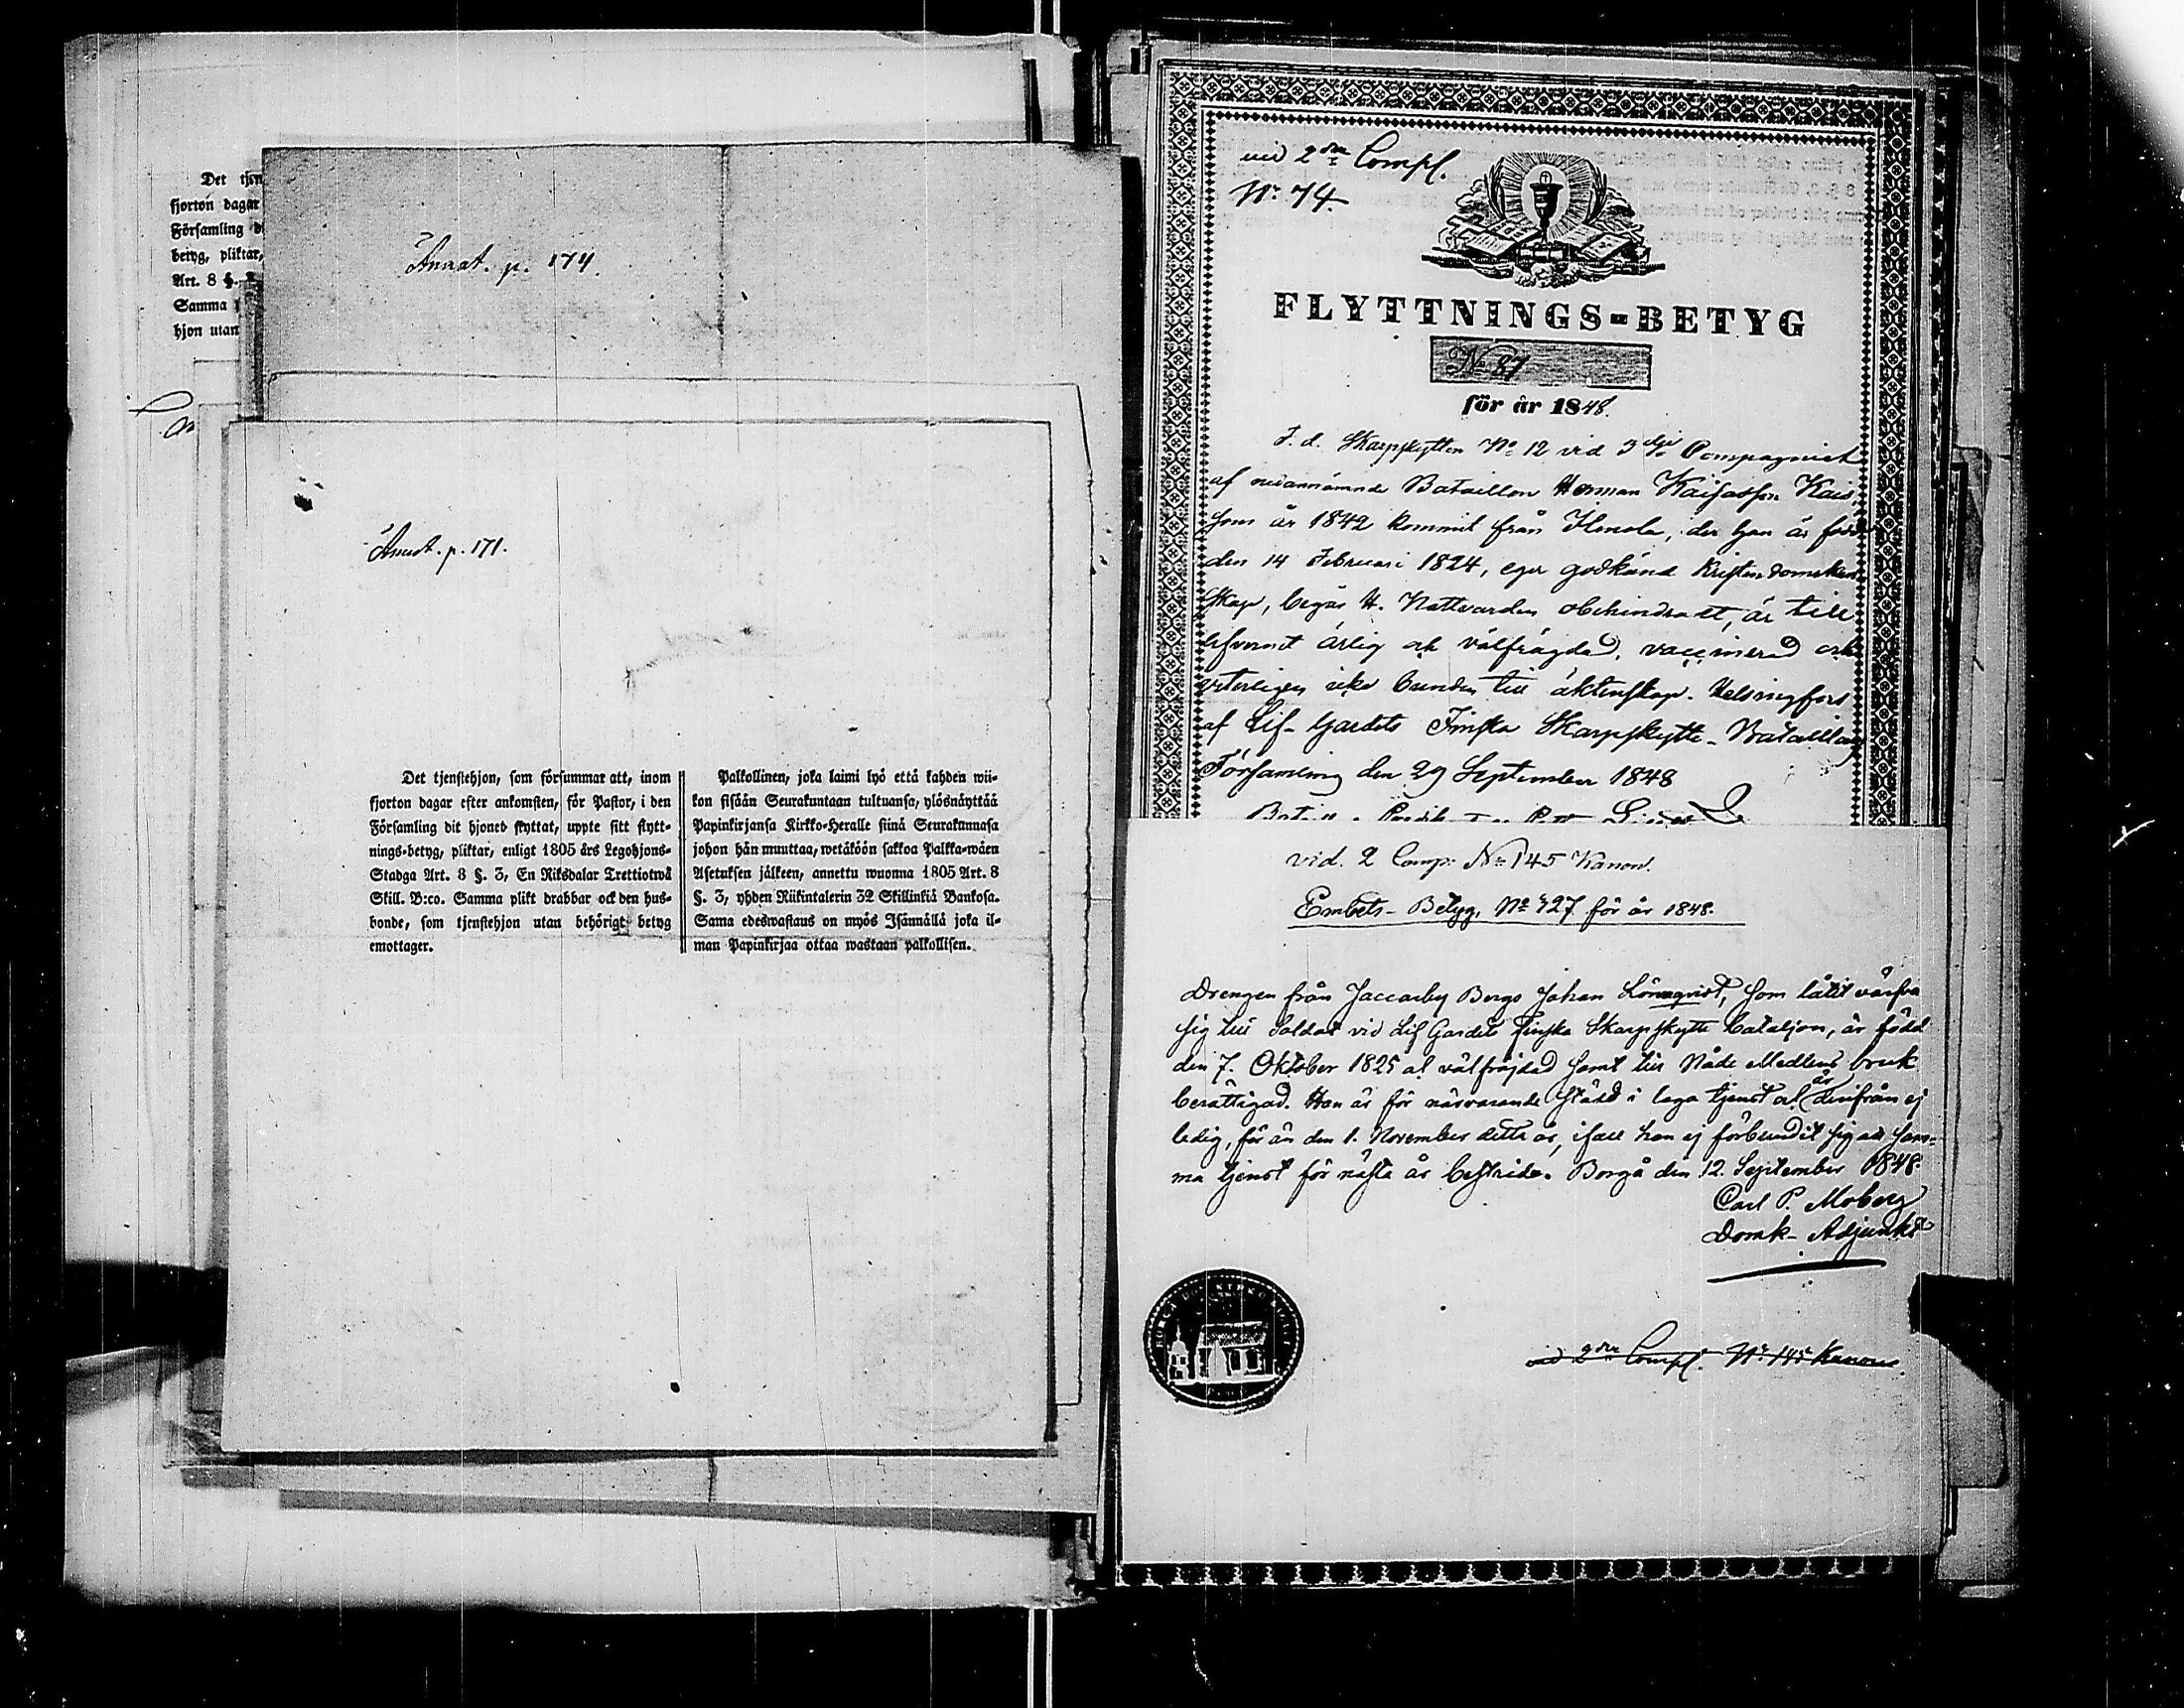 Det tjen
fjorton dagar
Församling d
betyg, pliktar,
Art. 8 §.
Samma
hjon utan
Annot. p. 174.
Annot. p. 171.
Det tjenstehjon, som försummar att, inom
fjorton dagar efter ankomsten, för Pastor, i den
Församling dit hjonet flyttat, uppte sitt flytt-
nings-betyg, pliktar, enligt 1805 års Legohjons-
Stadga Art. 8 §. 3, En Riksdalar Trettiotwå
Skill. B:co. Samma plikt drabbar ock den hus-
bonde, som tjenstehjon utan behörigt betyg
emottager.
Palkollinen, joka laimi lyö että kahden wii-
kon sisään Seurakuntaan tultuansa, ylösnäyttää
Papinkirjansa Kirkko-Heralle siinä Seurakunnasa
johon hän muuttaa, wetäköön sakkoa Palkka-wäen
Asetuksen jälkeen, annettu wuonna 1805 Art. 8
§. 3, yhden Riikintalerin 32 Skillinkiä Bankosa.
Sama edeswastaus on myös Isännällä joka il-
man Papinkirjaa ottaa wastaan palkollisen.
vid 2dra Comp.
No 74.
FLYTTNINGS-BETYG
No 87
för år 1848.
F. d. Skarpskytten No 12 vid 3dje Compagniet
af nedannämnde Bataillon Herman Kaisasson Kais
som år 1842 kommit från Ilmola, der han är född
den 14 Februari 1824, eger godkänd Kristendomskun
skap, begår H. Nattvarden obehindradt, är till
lefvernet ärlig och välfrägdad, vaccinerad och
veterligen icke bunden till äktenskap. Helsingfors
af Lif-Gardets Finska Skarpskytte-Bataillons
Församling den 29 September 1848
vid. 2 Comp. No 145 Kanon.
Embets-Betyg, No 427 för år 1848.
Drengen från Jaccarby Bergs Johan Lönnqvist, som låtit värfva
sig till Soldat vid Lif Gardets Finska Skarpskytte bataljon, är född
den 7. Oktober 1825 al välfräjdad samt till Nåde Medlens bruk
berättigad. Han är för närvarande städd i laga tjenst al är derifrån ej
ledig, för än den 1. November detta år, ifall han ej förbundit sig att sam-
ma tjenst för nästa år bestrida. Borgå den 12. September 1848.
Carl P. Moberg
Domk-Adjunkt
vid 2dra Comp. No 145 Kanon